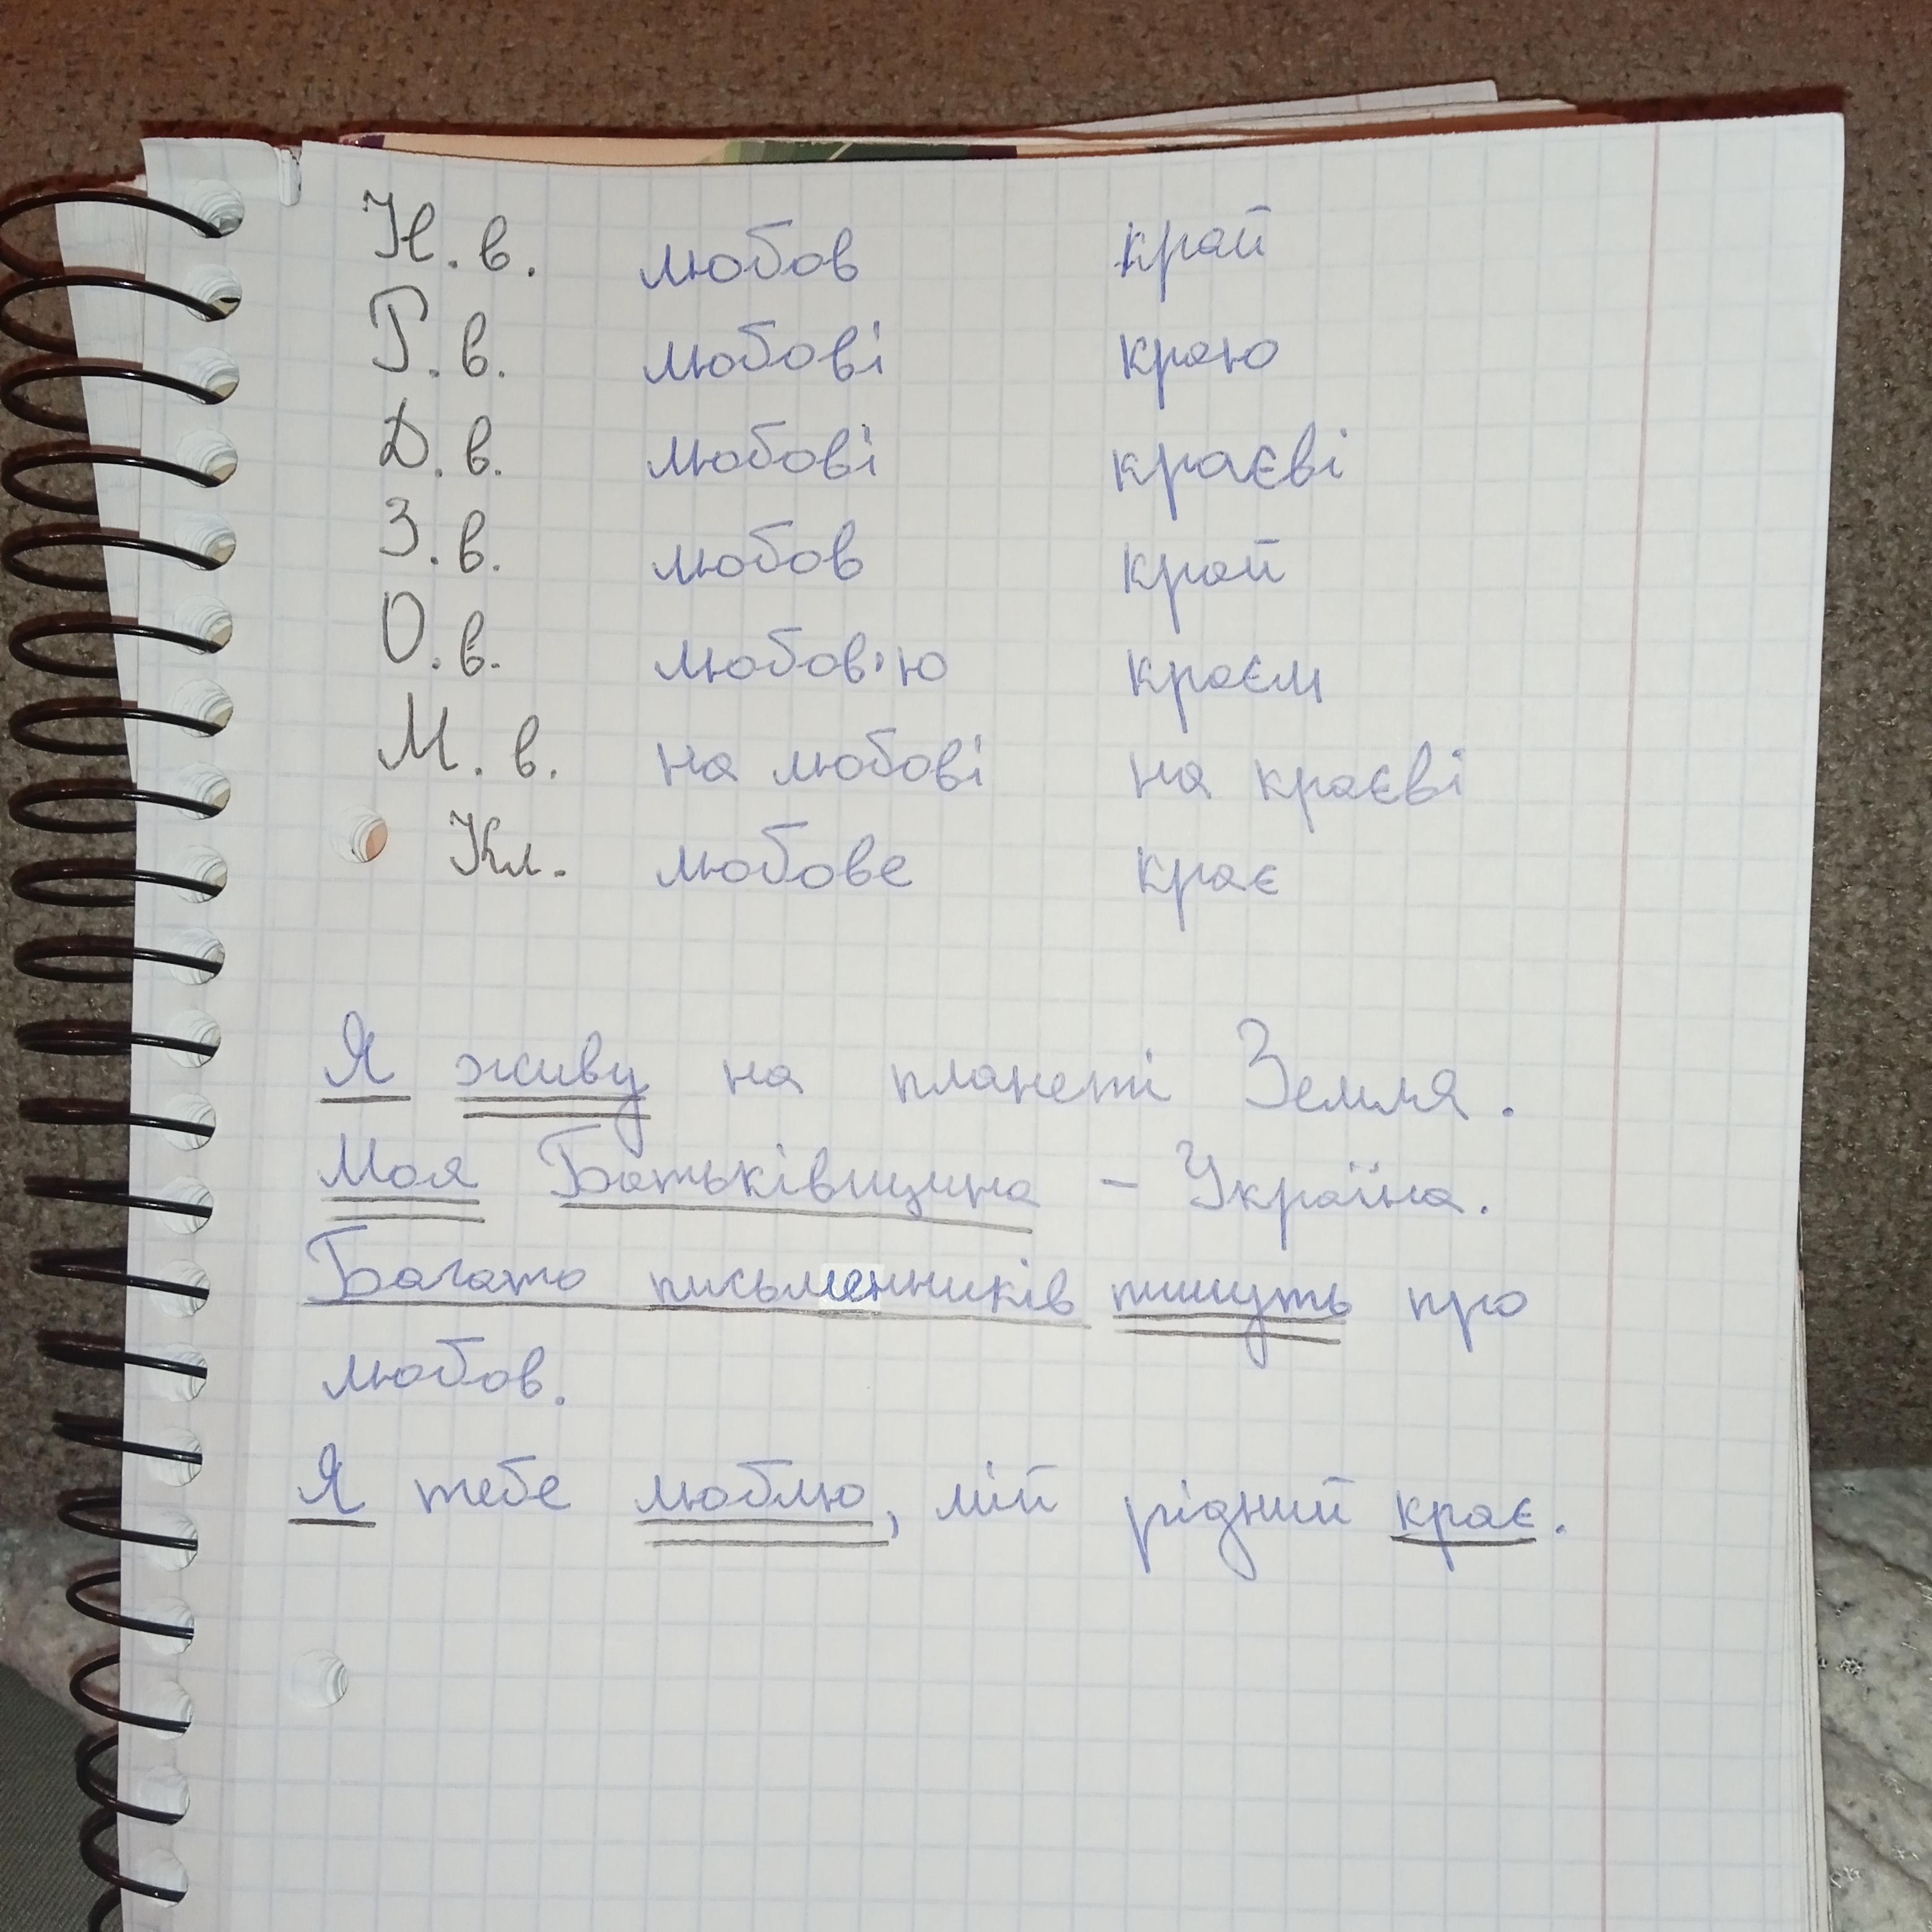 Н. в. любов край
Р. в. любові краю
Д. в. любові краєві
З. в. любов край
О. в. любов'ю краєм
М. в. на любові на краєві
Кл. любове крає
Я живу на планеті Земля.
Моя Батьківщина – Україна.
Багато письменників пишуть про
любов.
Я тебе люблю, мій рідний крає.